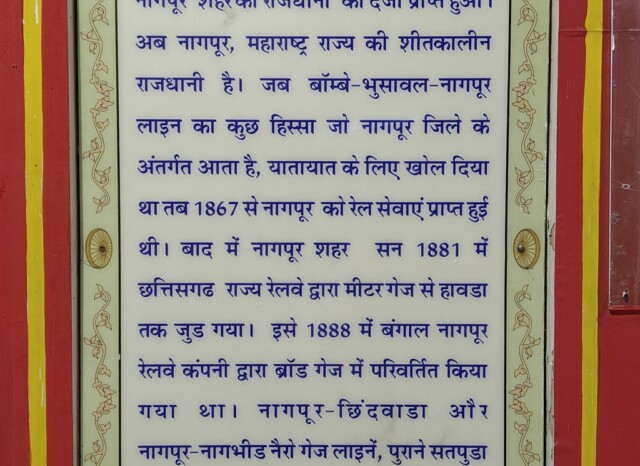 नागपूर शहर को राजधानी का दर्जा प्राप्त हुआ।
अब नागपूर, महाराष्ट्र राज्य की शीतकालीन
राजधानी है। जब बॉम्बे-भुसावल-नागपूर
लाइन का कुछ हिस्सा जो नागपूर जिले के
अंतर्गत आता है, यातायात के लिए खोल दिया
था तब 1867 से नागपूर को रेल सेवाएं प्राप्त हुई
थी। बाद में नागपूर शहर सन 1881 में
छत्तिसगढ राज्य रेलवे द्वारा मीटर गेज से हावडा
तक जुड गया। इसे 1888 में बंगाल नागपूर
रेलवे कंपनी द्वारा ब्रॉड गेज में परिवर्तित किया
गया था। नागपूर-छिंदवाडा और
नागपूर-नागभीड नैरो गेज लाइनें, पुराने सतपुडा